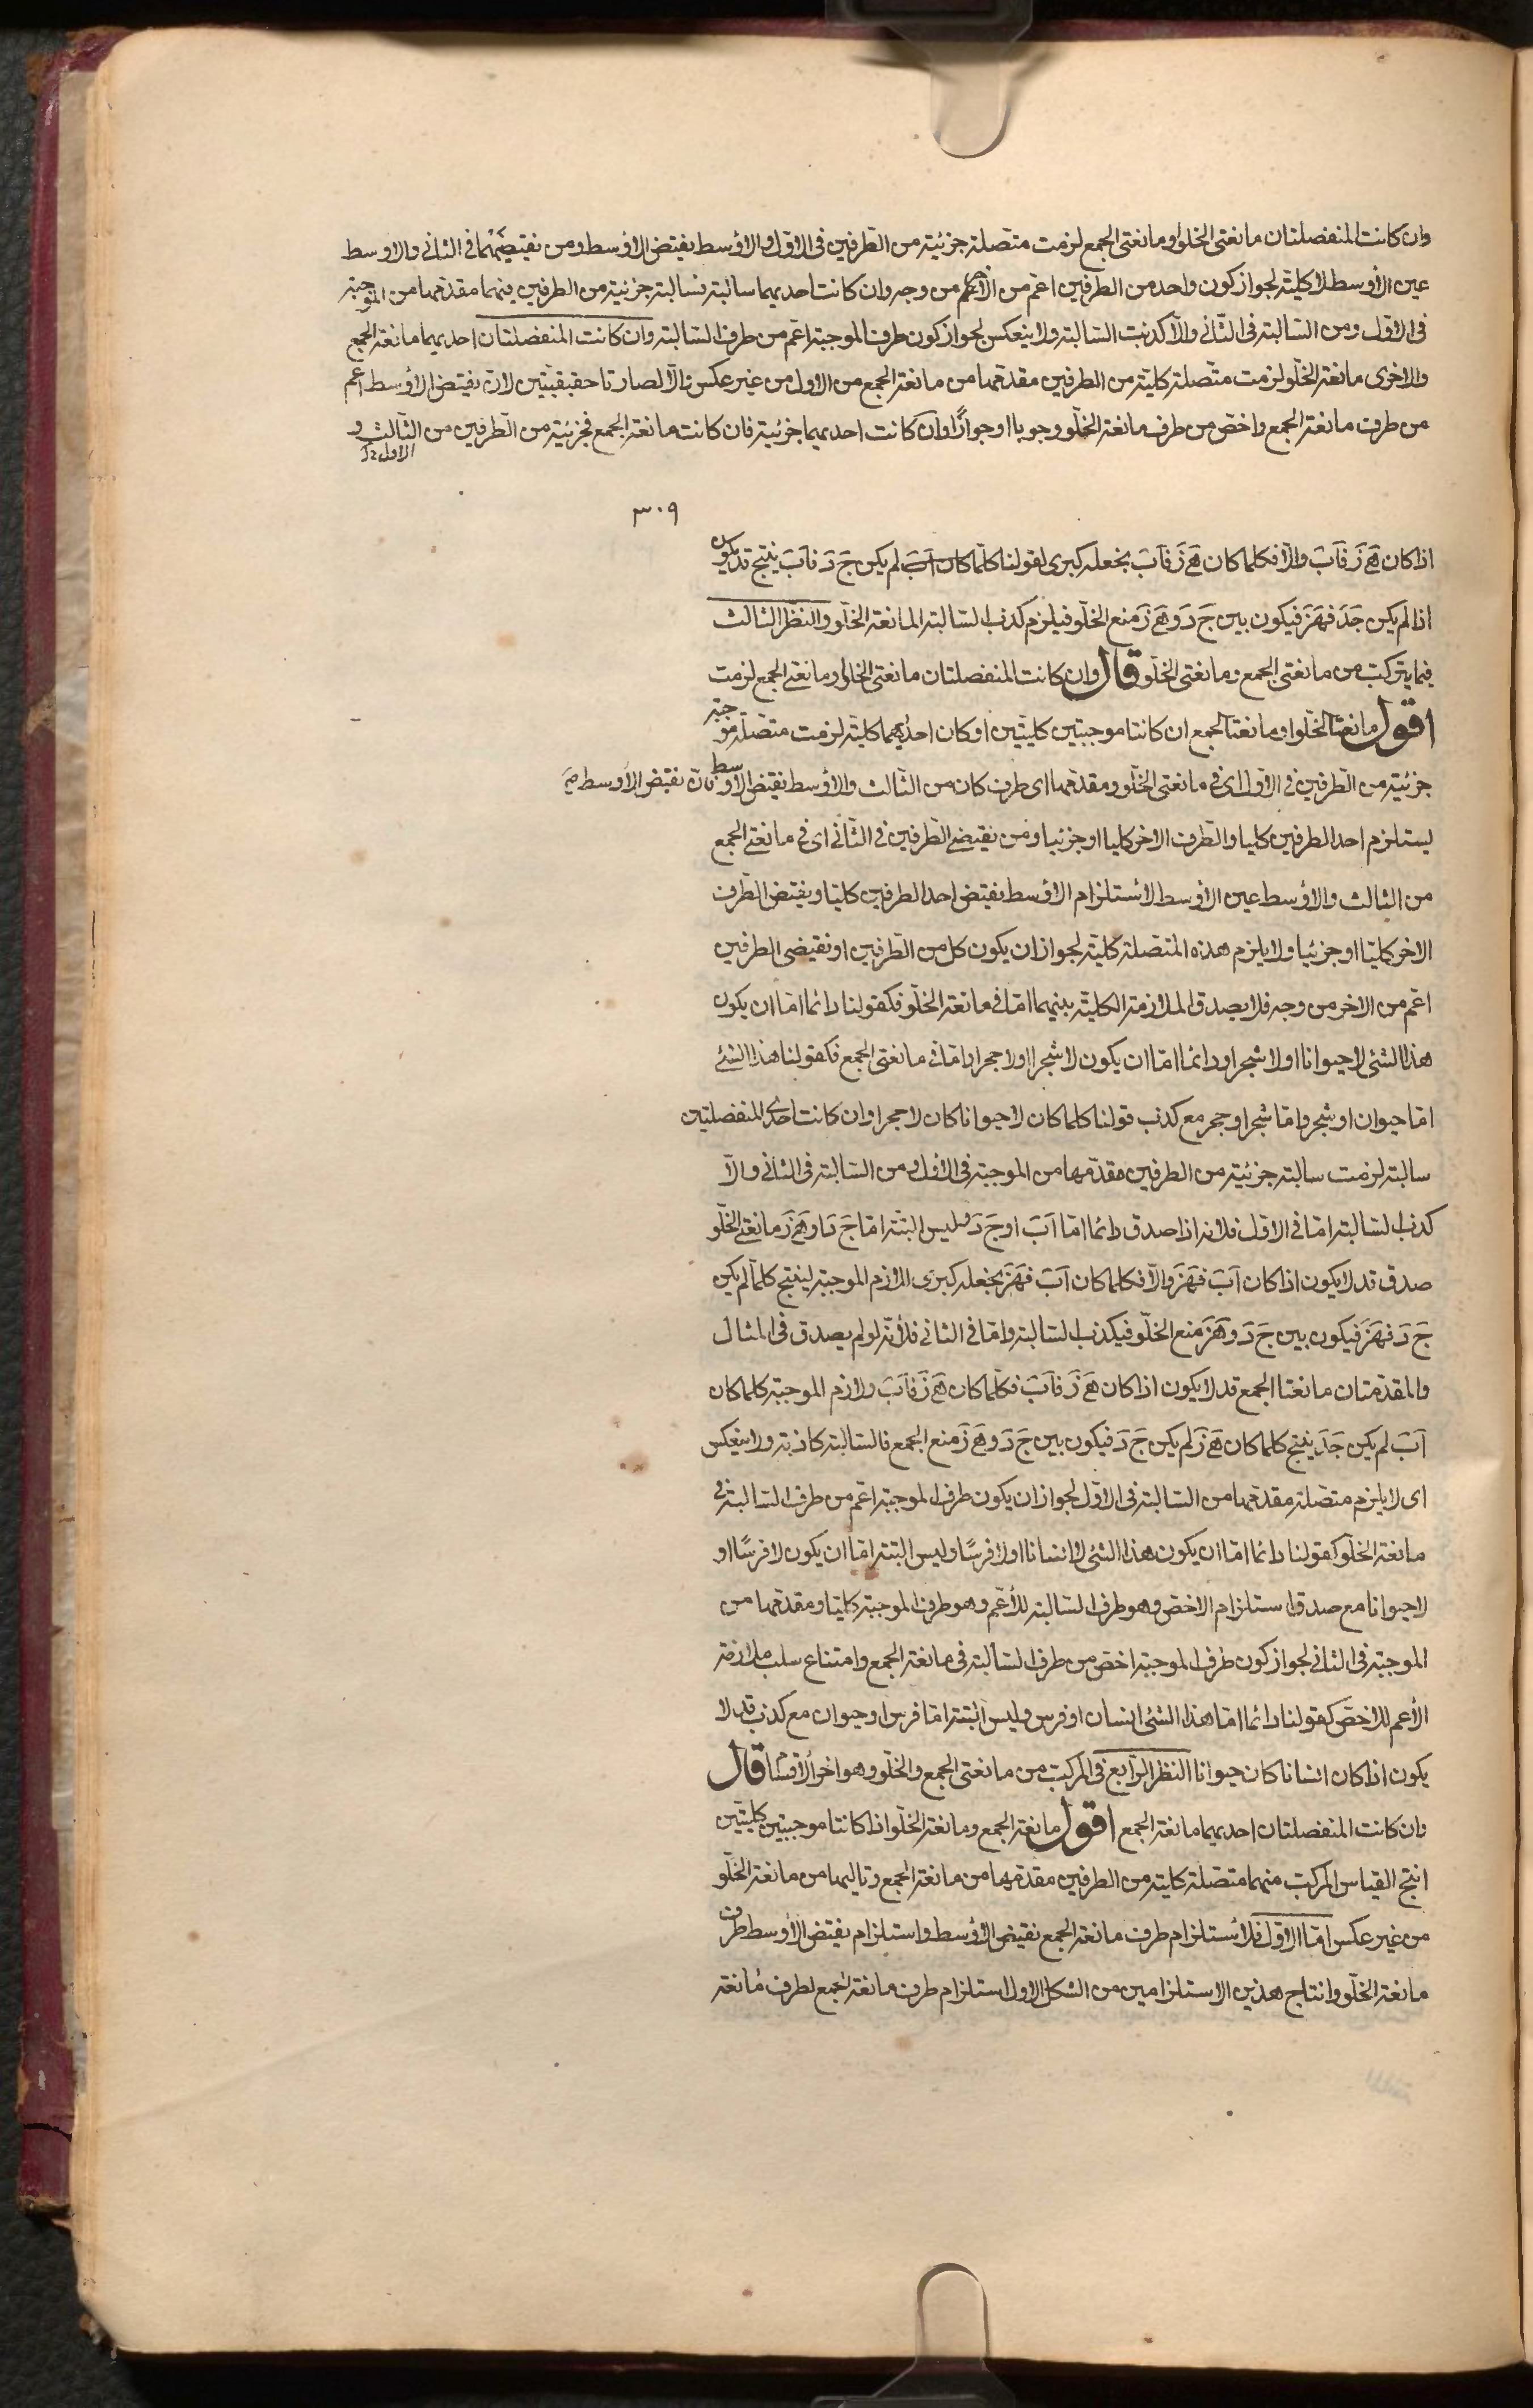 وان كانت المنفصلتان مانعتى الخلو او مانعتى الجمع لزمت متصلة جزئية من الطرفين فى الاول والاوسط نقيض الاوسط ومن نقيضيهما فى الثانى والاوسط
عين الاوسط لا كلية لجواز كون واحد من الطرفين اعم من الاخر من وجه وان كانت احديهما سالبة فسالبة جزئية من الطرفين فيهما مقدمها من الموجبة
فى الاول ومن السالبة فى الثانى والا كذبت السالبة ولا ينعكس لجواز كون طرف الموجبة اعم من طرف السالبة وان كانت المنفصلتان احديهما مانعة الجمع
والاخرى مانعة الخلو لزمت متصلة كلية من الطرفين مقدمها من مانعة الجمع من الاول من غير عكس والا لصارتا حقيقيتين لان نقيض الاوسط اعم
من طرف مانعة الجمع واخص من طرف مانعة الخلو وجوبا او جوازا وان كانت احديهما جزئية فان كانت مانعة الجمع فجزئية من الطرفين من الثالث و
الاول
٣٠٩
اذا كان هَ زَ فآبَ والا فكلما كان هَ زَ فآبَ نجعله كبرى لقولنا كلما كان آبَ لم يكن جَ دَ فآبَ ينتج قد يكون
اذا لم يكن جَدَ فهَزَ فيكون بين جَ دَ وهَ زَ منع الخلو فيلزم كذب السالبة المانعة الخلو والنظر الثالث
فيما يتركب من مانعتى الجمع ومانعتى الخلو قال وان كانت المنفصلتان مانعتى الخلو او مانعتى الجمع لزمت
اقول مانعتا الخلو او مانعتا الجمع ان كانتا موجبتين كليتين او كان احديهما كلية لزمت متصلة موجبة
جزئية من الطرفين فى الاول اى فى مانعتى الخلو ومقدمها اى طرف كان من الثالث والاوسط نقيض الاوسط فان نقيض الاوسط
يستلزم احد الطرفين كليا والطرف الاخر كليا او جزئيا ومن نقيضى الطرفين فى الثانى اى فى مانعتى الجمع
من الثالث والاوسط عين الاوسط لاستلزام الاوسط نقيض احد الطرفين كليا ونقيض الطرف
الاخر كليا او جزئيا ولا يلزم هذه المتصلة كلية لجواز ان يكون كل من الطرفين او نقيضى الطرفين
اعم من الاخر من وجه فلا يصدق الملازمة الكلية بينهما اما فى مانعة الخلو فكقولنا دائما اما ان يكون
هذا الشئ لا حيوانا او لا شجرا ودائما اما ان يكون لا شجرا او لا حجرا واما فى مانعتى الجمع فكقولنا هذا الشئ
اما حيوان او شجر واما شجر او حجر مع كذب قولنا كلما كان لا حيوانا كان لا حجرا وان كانت احدى المنفصلتين
سالبة لزمت سالبة جزئية من الطرفين مقدمها من الموجبة فى الاول ومن السالبة فى الثانى والا
كذب السالبة اما فى الاول فلانه اذا صدق دائما اما آبَ او جَ دَ وليس البتة اما جَ دَ او هَ زَ مانعتى الخلو
صدق قد لا يكون اذا كان آبَ فهَزَ والا فكلما كان آبَ فهَزَ نجعله كبرى للازم الموجبة لينتج كلما لم يكن
جَ دَ فهَزَ فيكون بين جَ دَ وهَزَ منع الخلو فيكذب السالبة واما فى الثانى فلأنه لو لم يصدق فى المثال
والمقدمتان مانعتا الجمع قد لا يكون اذا كان هَ زَ فآبَ فكلما كان هَ زَ فآبَ ولازم الموجبة كلما كان
آبَ لم يكن جَدَ ينتج كلما كان هَ زَ لم يكن جَ دَ فيكون بين جَ دَ وهَ زَ منع الجمع فالسالبة كاذبة ولا ينعكس
اى لا يلزم متصلة مقدمها من السالبة فى الاول لجواز ان يكون طرف الموجبة اعم من طرف السالبة فى
مانعة الخلو كقولنا دائما اما ان يكون هذا الشئ لا انسانا او لا فرسًا وليس البتة اما ان يكون لا فرسًا او
لا حيوانا مع صدق استلزام الاخص وهو طرف السالبة للأعم وهو طرف الموجبة كليا ومقدمها من
الموجبة فى الثانى لجواز كون طرف الموجبة اخص من طرف السالبة فى مانعة الجمع وامتناع سلب ملازمة
الأعم للاخص كقولنا دائما اما هذا الشئ انسان او فرس وليس البتة اما فرس او حيوان مع كذب قد لا
يكون اذا كان انسانا كان حيوانا النظر الرابع فى المركب من مانعتى الجمع والخلو وهو اخر الاقسا قال
وان كانت المنفصلتان احديهما مانعة الجمع اقول مانعة الجمع ومانعة الخلو اذا كانتا موجبتين كليتين
انتج القياس المركب منهما متصلة كلية من الطرفين مقدمها من مانعة الجمع وتاليها من مانعة الخلو
من غير عكس اما الاول فلأستلزام طرف مانعة الجمع نقيض الاوسط واستلزام نقيض الاوسط طرف
مانعة الخلو وانتاج هذين الاستلزامين من الشكل الاول استلزام طرف مانعة الجمع لطرف مانعة